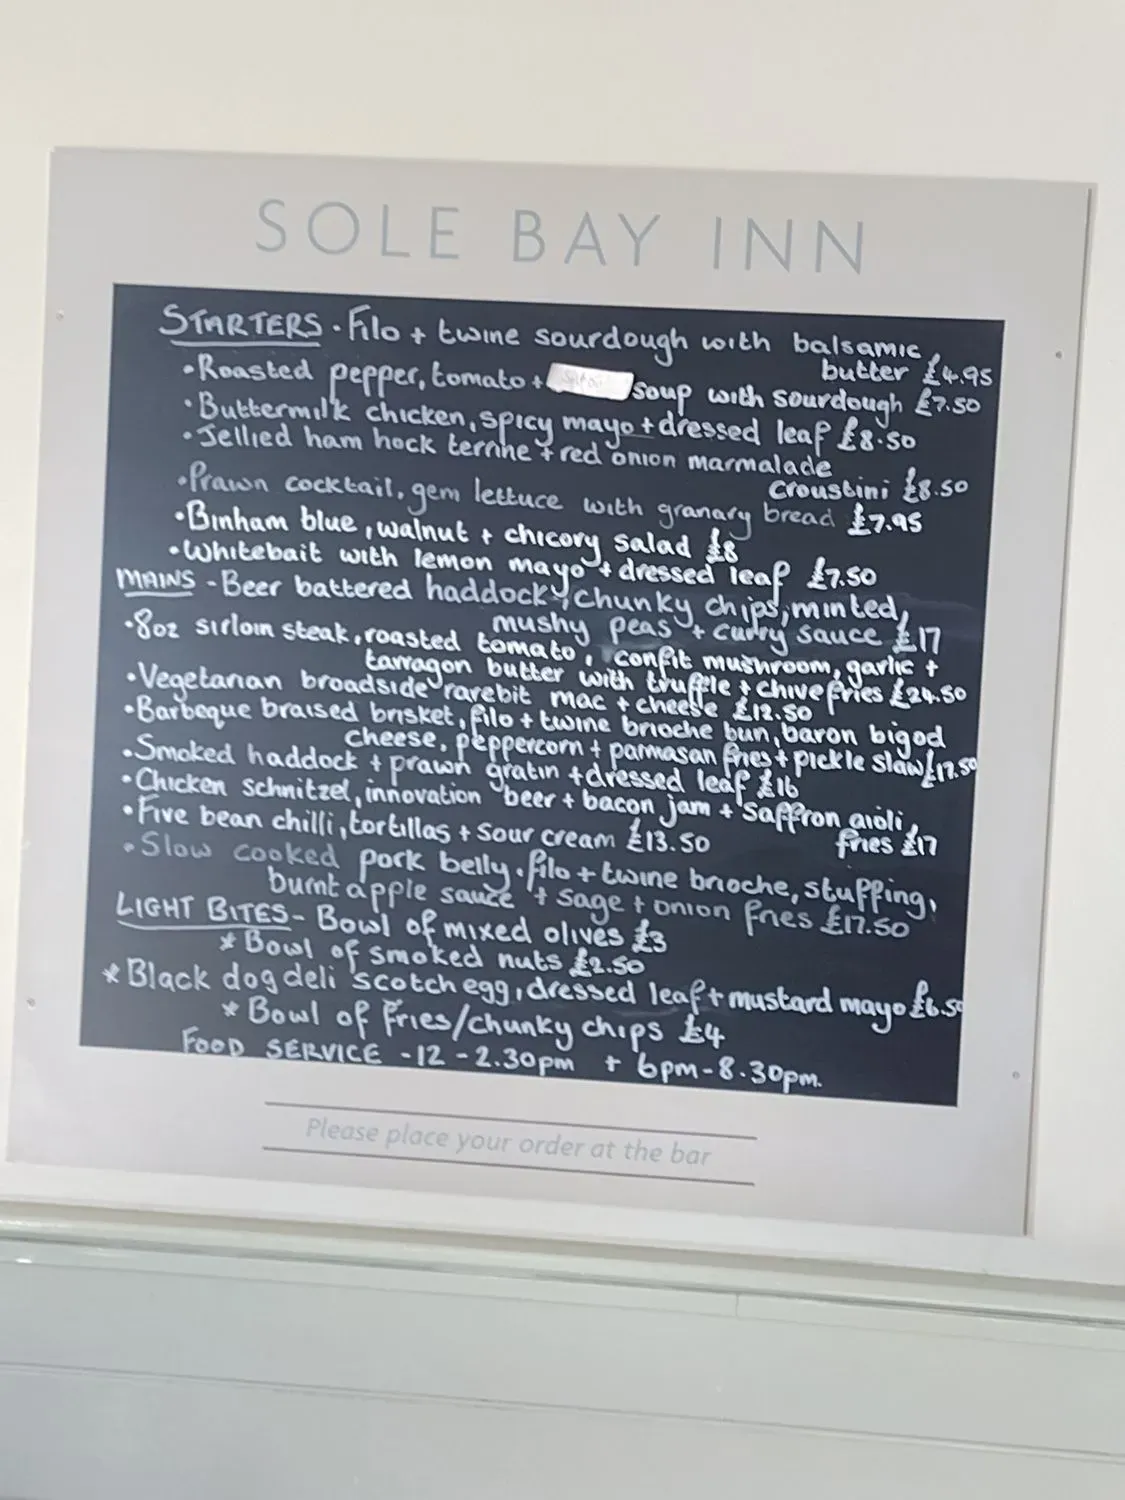 SOLE BAY INN
STARTERS · Filo + twine sourdough with balsamic
butter £4.95
· Roasted pepper, tomato + soup with sourdough £7.50
· Buttermilk chicken, spicy mayo + dressed leaf £8.50
· Jellied ham hock terrine + red onion marmalade
croustini £8.50
· Prawn cocktail, gem lettuce with granary bread £7.95
· Binham blue, walnut + chicory salad £8
· Whitebait with lemon mayo + dressed leaf £7.50
MAINS - Beer battered haddock, chunky chips, minted,
mushy peas + curry sauce £17
· 8oz sirloin steak, roasted tomato, confit mushroom, garlic +
tarragon butter with truffle + chive fries £24.50
· Vegetarian broadside rarebit mac + cheese £12.50
· Barbeque braised brisket, filo + twine brioche bun, baron bigod
cheese, peppercorn + parmasan fries + pickle slaw £17.50
· Smoked haddock + prawn gratin + dressed leaf £16
· Chicken schnitzel, innovation beer + bacon jam + saffron aioli,
fries £17
· Five bean chilli, tortillas + sour cream £13.50
· Slow cooked pork belly · filo + twine brioche, stuffing,
burnt apple sauce + sage + onion fries £17.50
LIGHT BITES - Bowl of mixed olives £3
* Bowl of smoked nuts £2.50
* Black dog deli scotch egg, dressed leaf + mustard mayo £6.50
* Bowl of fries/chunky chips £4
FOOD SERVICE - 12 - 2.30pm + 6pm - 8.30pm.
Please place your order at the bar